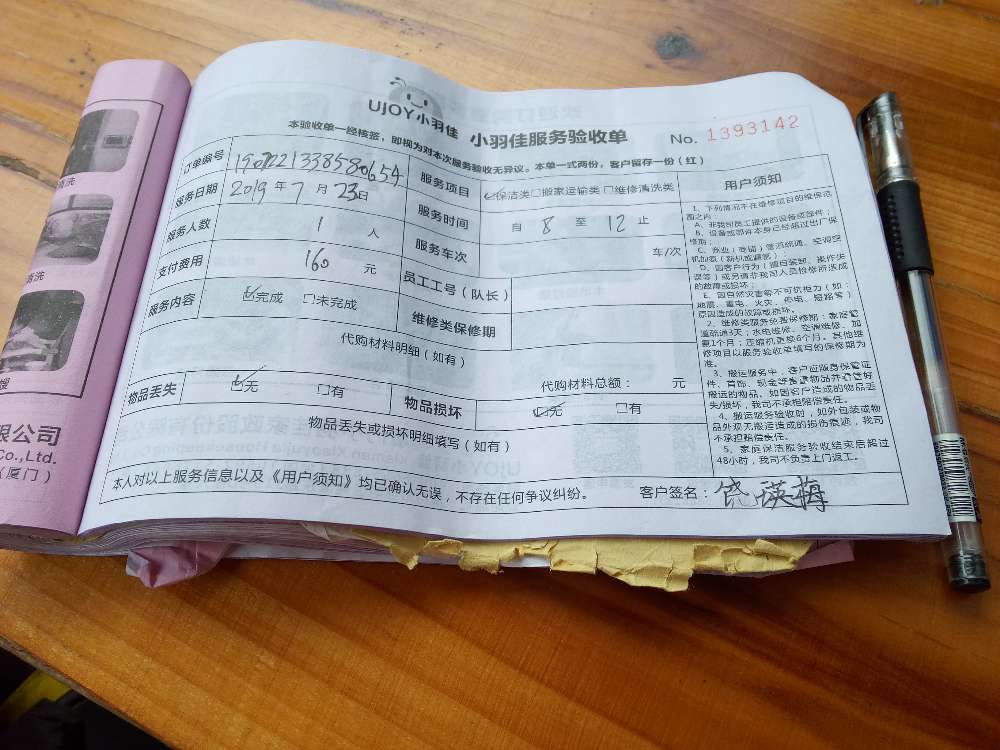 UJOY小羽佳 小羽佳服务验收单 No. 1393142
本验收单一经核签，即视为对本次服务验收无异议。本单一式两份，客户留存一份（红）
订单编号 服务项目 保洁类 搬家运输类 维修清洗类 用户须知
服务日期 2019 年 7 月 23 日 服务时间 自 8 至 12 止
服务人数 1 人 服务车次 车/次
支付费用 160 元 员工工号（队长）
服务内容 完成 未完成 维修类保修期
代购材料明细（如有）
代购材料总额： 元
物品丢失 无 有 物品损坏 无 有
物品丢失或损坏明细填写（如有）
本人对以上服务信息以及《用户须知》均已确认无误，不存在任何争议纠纷。 客户签名：
1、下列情况不在维修项目的维保范
围之内：
A、非我司员工提供的设备或部件；
B、设备或部件本身已经超过出厂保
修期；
E、因自然灾害等不可抗拒力（如：
地震、雷电、火灾、停电、短路等）
原因造成的故障或损坏；
2、维修类服务统一保修期：家庭管
道疏通3天；水电维修、空调维修、加
氟1个月；压缩机更换6个月。其他维
修项目以服务验收单填写的保修期为
准。
3、搬运服务中，客户应随身保管证
件、首饰、现金等贵重物品并看管好
搬运的物品，如因客户造成的物品丢
失/损坏，我司不承担赔偿责任。
4、搬运服务验收时，如外包装或物
品外观无搬运造成的损伤痕迹，我司
不承担赔偿责任。
5、家庭保洁服务验收结束后超过
48小时，我司不负责上门返工。
清洗
清洗
嫂
限公司
Co.,Ltd.
（厦门）